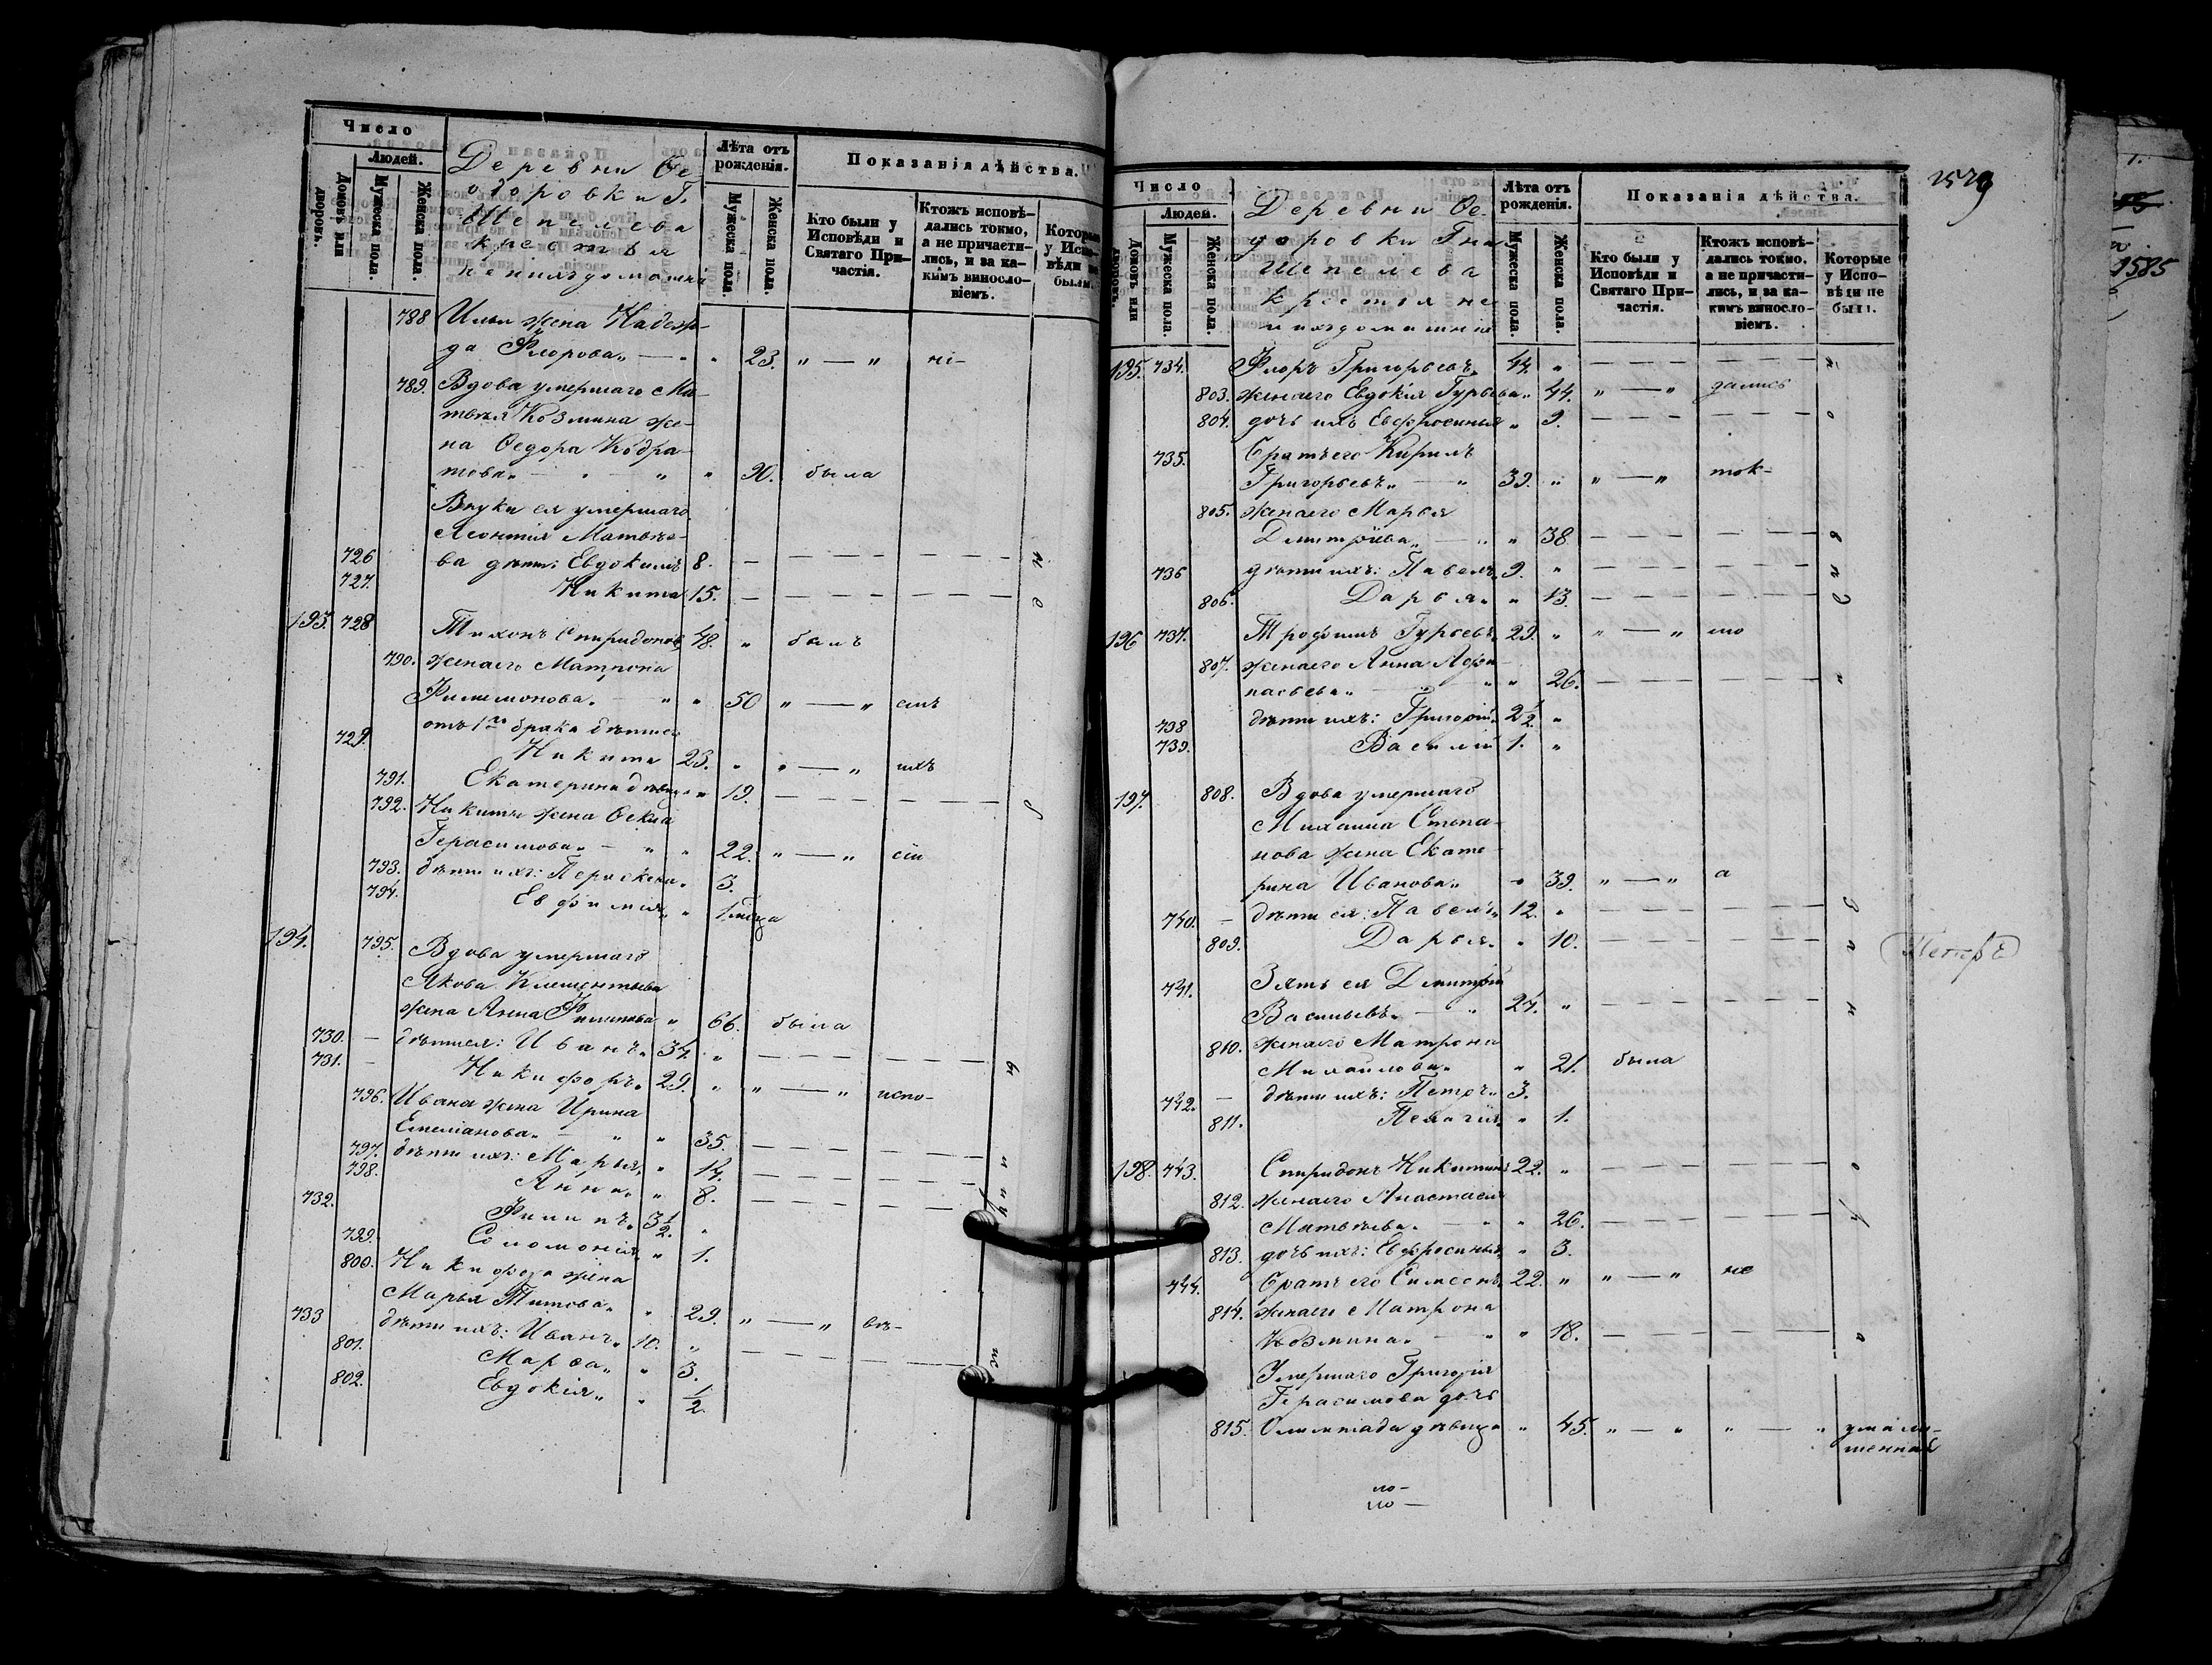 Число
Людей.
Домовъ или дворовъ.
Мужеска пола.
Женска пола.
Деревни Ѳе
одоровки Г.
Шепелева
крестья
не и ихъ домашніе
Лѣта отъ рожденія.
Мужеска пола.
Женска пола.
Показанія дѣйства.
Кто были у Исповѣди и Святаго Причастія.
Ктожъ исповѣдались токмо, а не причастились, и за какимъ винословіемъ.
Которые у Исповѣди не были.
788 Ильи жена Надеж-
да Флорова „ 23. „ — „ ні-
789. Вдова умершаго Ма-
твѣя Козмина же-
на Ѳедора Кодра-
това „ „ 90. была
Внуки ея умершаго
Леонтія Матвѣе-
726 ва дѣти: Евдокимъ 8. н
727. Никита 15. е
193. 728 Тихонъ Спиридоновъ 48. „ былъ
790. жена его Матрона
Филимонова „ „ 50 „ — „ емъ
отъ 1го брака дѣти его
729. Никита 23. „ „ — „ ихъ
791. Екатерина дѣвица „ 19.
792. Никиты жена Ѳекла
Герасимова „ „ 22. „ — „ сіи
793. дѣти ихъ: Параскева „ 3.
794. Евфимія „ „ 1 мѣсца
194. 795. Вдова умершаго
Якова Клементьева
жена Анна Филипова „ 66. была
730. — дѣти ея: Иванъ „ 34. „
731. — Никифоръ „ 29. „ „ — „ испо-
796. Ивана жена Ирина
Емеліанова „ „ 35.
797. дѣти ихъ: Марья „ „ 14.
798. Анна „ „ 8.
732. Филипъ „ 3 1/2. „
799. Соломонія „ „ 1.
800. Никифора жена
Марья Титова „ „ 29. „ — „ вѣ-
733 дѣти ихъ: Иванъ „ 10. „
801. Марѳа „ „ 3.
802. Евдокія „ „ 1/2
1579
Число
Людей.
Домовъ или дворовъ.
Мужеска пола.
Женска пола.
Деревни Ѳе-
доровки Гна
Шепелева
крестьяне
и ихъ домашніе
Лѣта отъ рожденія.
Мужеска пола.
Женска пола.
Показанія дѣйства.
Кто были у Исповѣди и Святаго Причастія.
Ктожъ исповѣдались токмо, а не причастились, и за какимъ винословіемъ.
Которые у Исповѣди не были.
195. 734. Флоръ Григорьевъ „ 44. „
803. жена его Евдокія Гурьева „ 44. „ — „ дались
804. дочь ихъ Евфросинья „ 9.
735. Братъ его Кирилъ
Григорьевъ „ 39. „ „ — „ ток-
805. жена его Марья
Дмитріева „ „ 38
736 дѣти ихъ: Павелъ „ 9. „
806. Дарья „ „ 13.
196 737. Трофимъ Гурьевъ „ 29. „ „ — „ мо
807. жена его Анна Афа-
насьева „ „ 26.
738 дѣти ихъ: Григорій „ 2 1/2. „
739. Василій 1. „
197. 808. Вдова умершаго
Михаила Степа-
нова жена Екате-
рина Иванова „ „ 39. „ — „ а
740. — дѣти ея: Павелъ „ 12. „
809. Дарья „ „ 10.
741. Зять ея Дмитрій
Васильевъ „ 27. „
810. жена его Матрона
Михайлова „ „ 21. была
742. — дѣти ихъ: Петръ „ 3.
811. Пелагія „ „ 1.
198. 743. Спиридонъ Никитинъ 22. „
812. жена его Анастасія
Матвѣева „ „ 26.
813. дочь ихъ: Евфросинья „ 3.
744. Братъ его Симеонъ „ 22. „ „ — „ не
814. жена его Матрона
Козмина „ „ 18.
Умершаго Григорія
Герасимова дочь
815. Олимпіада дѣвица „ 45. „ — „ „ — „ умали-
шенная
1585